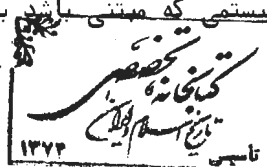 سیستمی که مبتنی باشد ب
کتابخانه تخصصی
تاریخ اسلام و ایران
تاسیس
۱۳۷۴